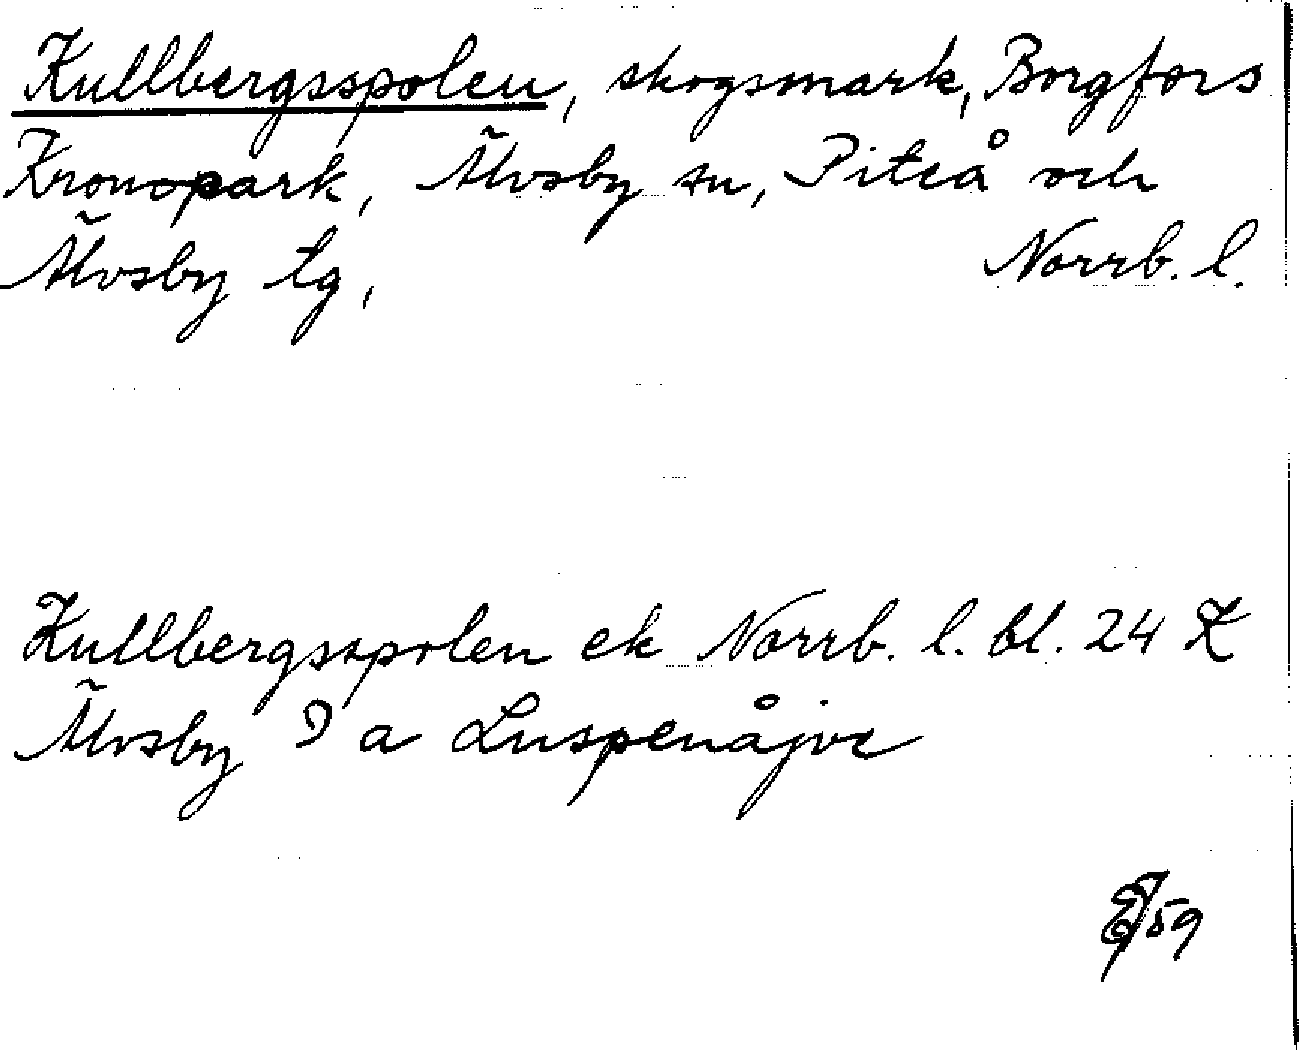 Kullbergsspolen, skogsmark, Borgfors
Kronopark, Älvsby sn, Piteå och
Älvsby tg, Norrb. l.
Kullbergsspolen ek Norrb. l. bl. 24 K
Älvsby 9 a Luspenåjve
59